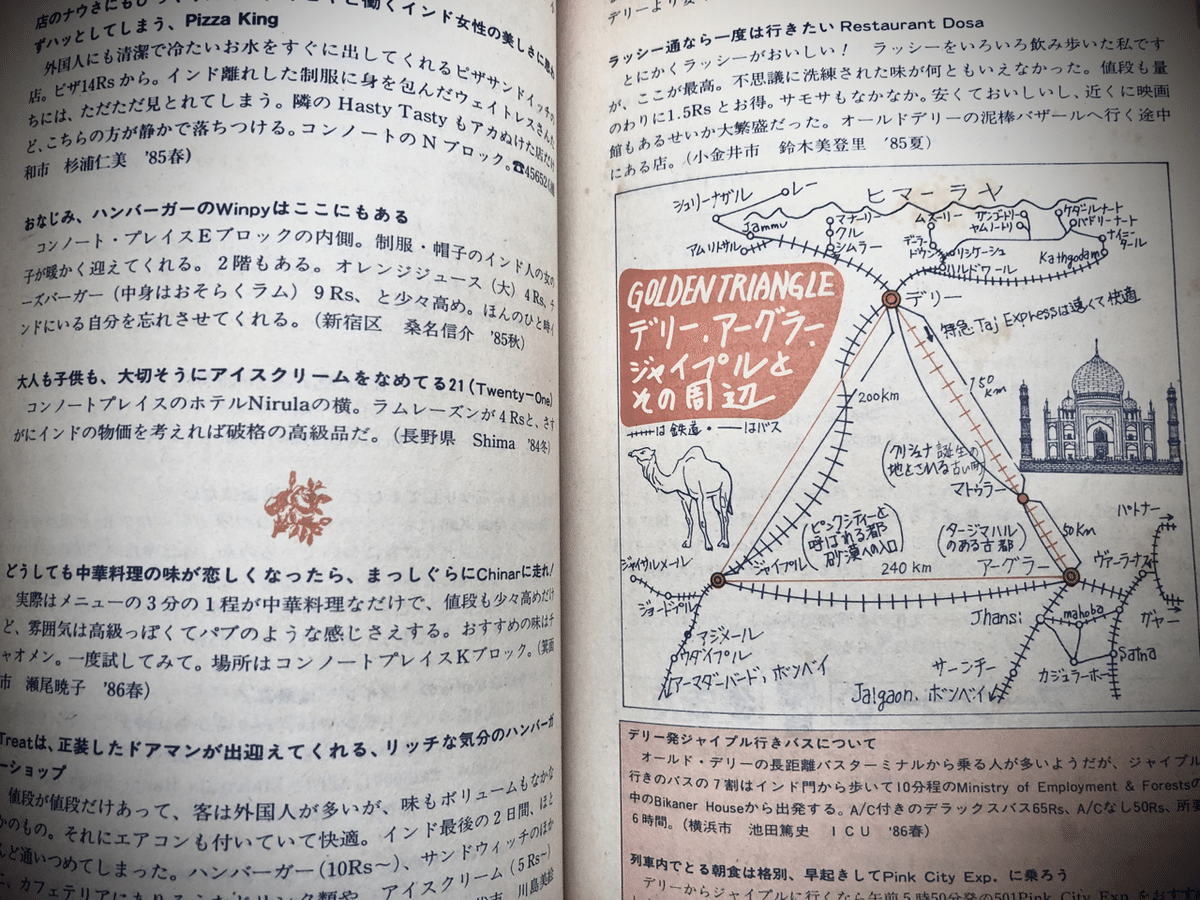 インド女性の美しさに思わ
ずハッとしてしまう、Pizza King
外国人にも清潔で冷たいお水をすぐに出してくれるピザサンドイッチの
店。ピザ14Rsから。インド離れした制服に身を包んだウェイトレスさんた
ちには、ただただ見とれてしまう。隣のHasty Tastyもアカぬけた店だけ
ど、こちらの方が静かで落ちつける。コンノートのNブロック。☎45652
和市 杉浦仁美 '85春)
おなじみ、ハンバーガーのWinpyはここにもある
コンノート・プレイスEブロックの内側。制服・帽子のインド人の女の
子が暖かく迎えてくれる。2階もある。オレンジジュース(大)4Rs、チ
ーズバーガー(中身はおそらくラム)9Rs、と少々高め。ほんのひと時イ
ンドにいる自分を忘れさせてくれる。(新宿区 桑名信介 '85秋)
大人も子供も、大切そうにアイスクリームをなめてる21(Twenty-One)
コンノートプレイスのホテルNirulaの横。ラムレーズンが4Rsと、さす
がにインドの物価を考えれば破格の高級品だ。(長野県 Shima '84冬)
どうしても中華料理の味が恋しくなったら、まっしぐらにChinarに走れ!
実際はメニューの3分の1程が中華料理なだけで、値段も少々高めだけ
ど、雰囲気は高級っぽくてパブのような感じさえする。おすすめの味はチ
ャオメン。一度試してみて。場所はコンノートプレイスKブロック。(箕面
市 瀬尾暁子 '86春)
Treatは、正装したドアマンが出迎えてくれる、リッチな気分のハンバーガ
ーショップ
値段が値段だけあって、客は外国人が多いが、味もボリュームもなかな
かのもの。それにエアコンも付いていて快適。インド最後の2日間、ほと
んど通いつめてしまった。ハンバーガー(10Rs〜)、サンドウィッチのほか
アイスクリーム(5Rs〜)
川島美絵
ラッシー通なら一度は行きたい Restaurant Dosa
とにかくラッシーがおいしい! ラッシーをいろいろ飲み歩いた私です
が、ここが最高。不思議に洗練された味が何ともいえなかった。値段も量
のわりに1.5Rsとお得。サモサもなかなか。安くておいしいし、近くに映画
館もあるせいか大繁盛だった。オールドデリーの泥棒バザールへ行く途中
にある店。(小金井市 鈴木美登里 '85夏)
ヒマーラヤ
シュリーナガル
レー
Jammu
アムリトサル
マナーリー
クル
シムラー
ムスーリー
デラー
ドゥン
ガンゴートリー
ヤムノートリ
ケダールナート
バドリーナート
リシケーシュ
ハルドワール
ナイニー
タール
Kathgodam
GOLDEN TRIANGLE
デリー、アーグラー、
ジャイプルと
その周辺
は鉄道・—はバス
デリー
特急Taj Expressは速くて快適
150
km
200km
(クリシュナ誕生の
地とされる古い町)
マトゥラー
50Km
(ピンクシティーと
呼ばれる都
砂漠への入口)
ジャイプル
(タージマハル
のある古都)
アーグラー
240 km
パトナー
ヴァーラナスィ
ガヤー
ジャイサルメール
ジョードプル
アジメール
ウダイプル
アーマダーバード、ボンベイ
Jhansi
mahoba
Satna
カジュラーホー
サーンチー
Jalgaon、ボンベイ
デリー発ジャイプル行きバスについて
オールド・デリーの長距離バスターミナルから乗る人が多いようだが、ジャイプル
行きのバスの7割はインド門から歩いて10分程のMinistry of Employment & Forestsの
中のBikaner Houseから出発する。A/C付きのデラックスバス65Rs、A/Cなし50Rs、所要
6時間。(横浜市 池田篤史 ICU '86春)
列車内でとる朝食は格別、早起きしてPink City Exp. に乗ろう
デリーからジャイプルに行くなら午前5時50分発の501Pink City Exp.をおすす